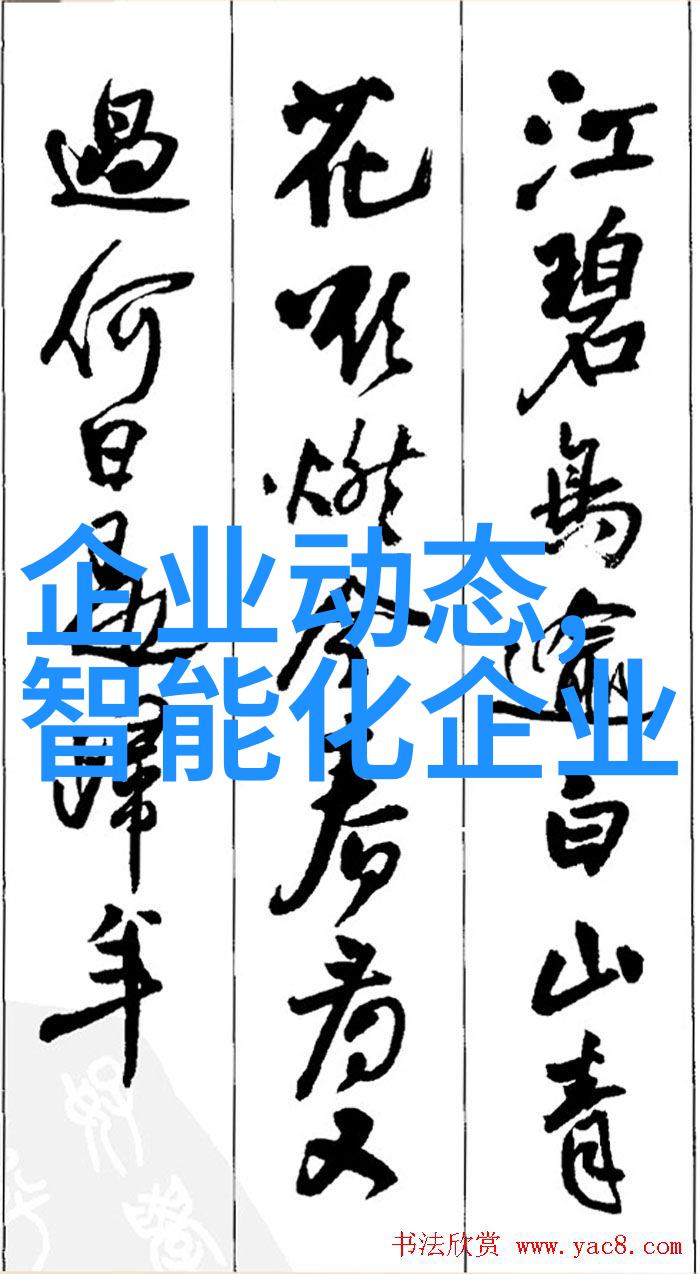 江碧鳥逾白山青
花欲燃今春看又
過何日是歸年
企业动态,
智能化企业
书法欣赏 www.yac8.com